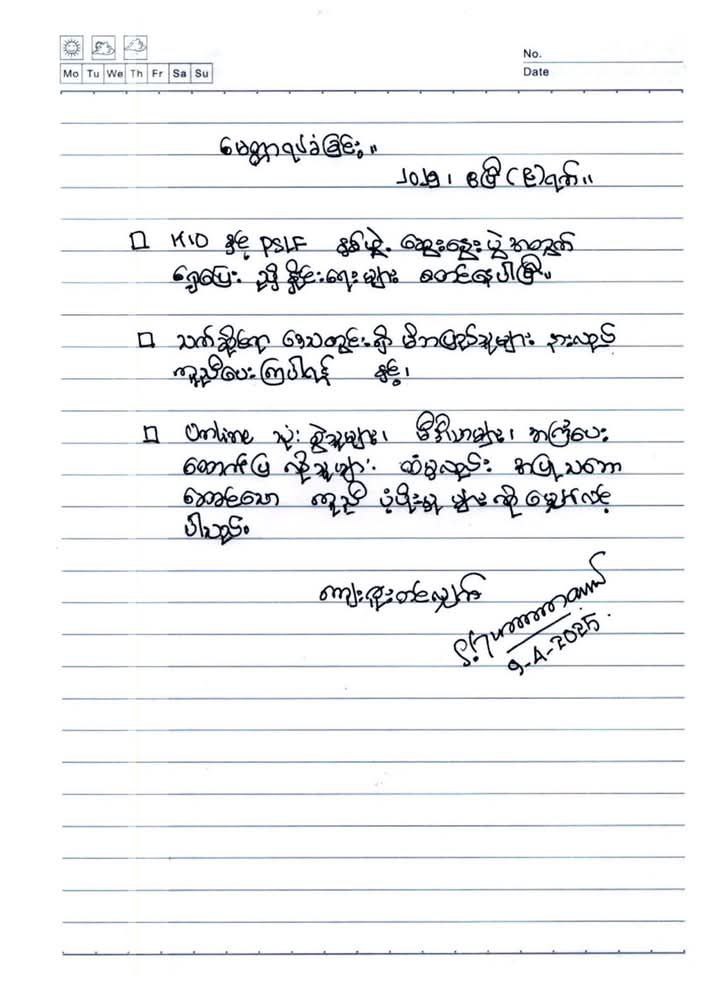 No.
Mo Tu We Th Fr Sa Su
Date
မေတ္တာရပ်ခံခြင်း။
၂၀၂၅၊ ဧပြီ (၉) ရက်။
□ KIO နှင့် PSLF နှစ်ဖွဲ့ ဆွေးနွေးပွဲ အတွက်
ရှေ့ပြေး ညှိနှိုင်းရေးများ စတင်နေပါပြီ။
□ သက်ဆိုင်ရာ ဒေသတွင်းရှိ မိဘပြည်သူများ နားလည်
ကူညီပေးကြပါရန် နှင့်၊
□ Online သုံးစွဲသူများ၊ မီဒီယာများ၊ အကြံပေး
ထောက်ပြလိုသူများ ထံမှလည်း အပြုသဘော
ဆောင်သော ကူညီ ပံ့ပိုးမှု များကို မျှော်လင့်
ပါသည်။
ကျေးဇူးတင်လျှက်
9-4-2025.